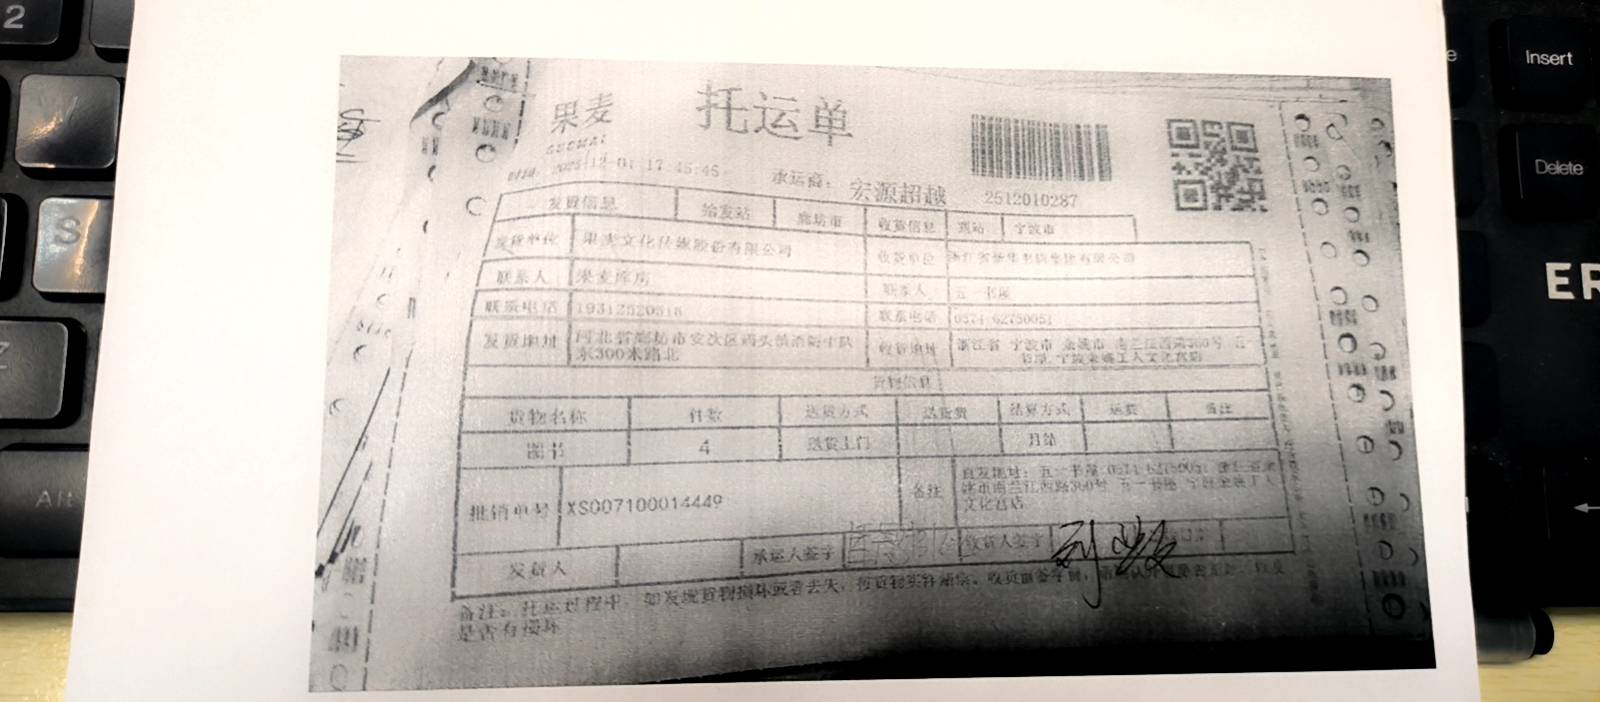 2
W
S
Z
Alt
Insert
Delete
ER
果麦
托运单
GUOMAI
时间: 2025-12-01 17:45:46
承运商: 宏源超越
2512010287
发货信息 始发站 廊坊市 收货信息 到站 宁波市
发货单位 果麦文化传媒股份有限公司 收货单位 浙江省新华书店集团有限公司
联系人 果麦库房 联系人 五一书屋
联系电话 联系电话 0574-62750051
发货地址 河北省廊坊市安次区码头镇消防中队东300米路北 收货地址 浙江省 宁波市 余姚市 南兰江西路360号 五一书屋
货物信息
货物名称 件数 送货方式 送货费 结算方式 运费 备注
图书 4 送货上门 月结
批销单号 XS007100014449 备注 直发地址: 五一书屋 0574-62750051
姚市南兰江西路360号 五一书屋 宁波余姚工人
文化宫店
发货人 承运人签字 收货人签字
备注: 托运过程中, 如发现货物损坏或者丢失, 按货物实价赔偿。收货前签字前,
是否有损坏